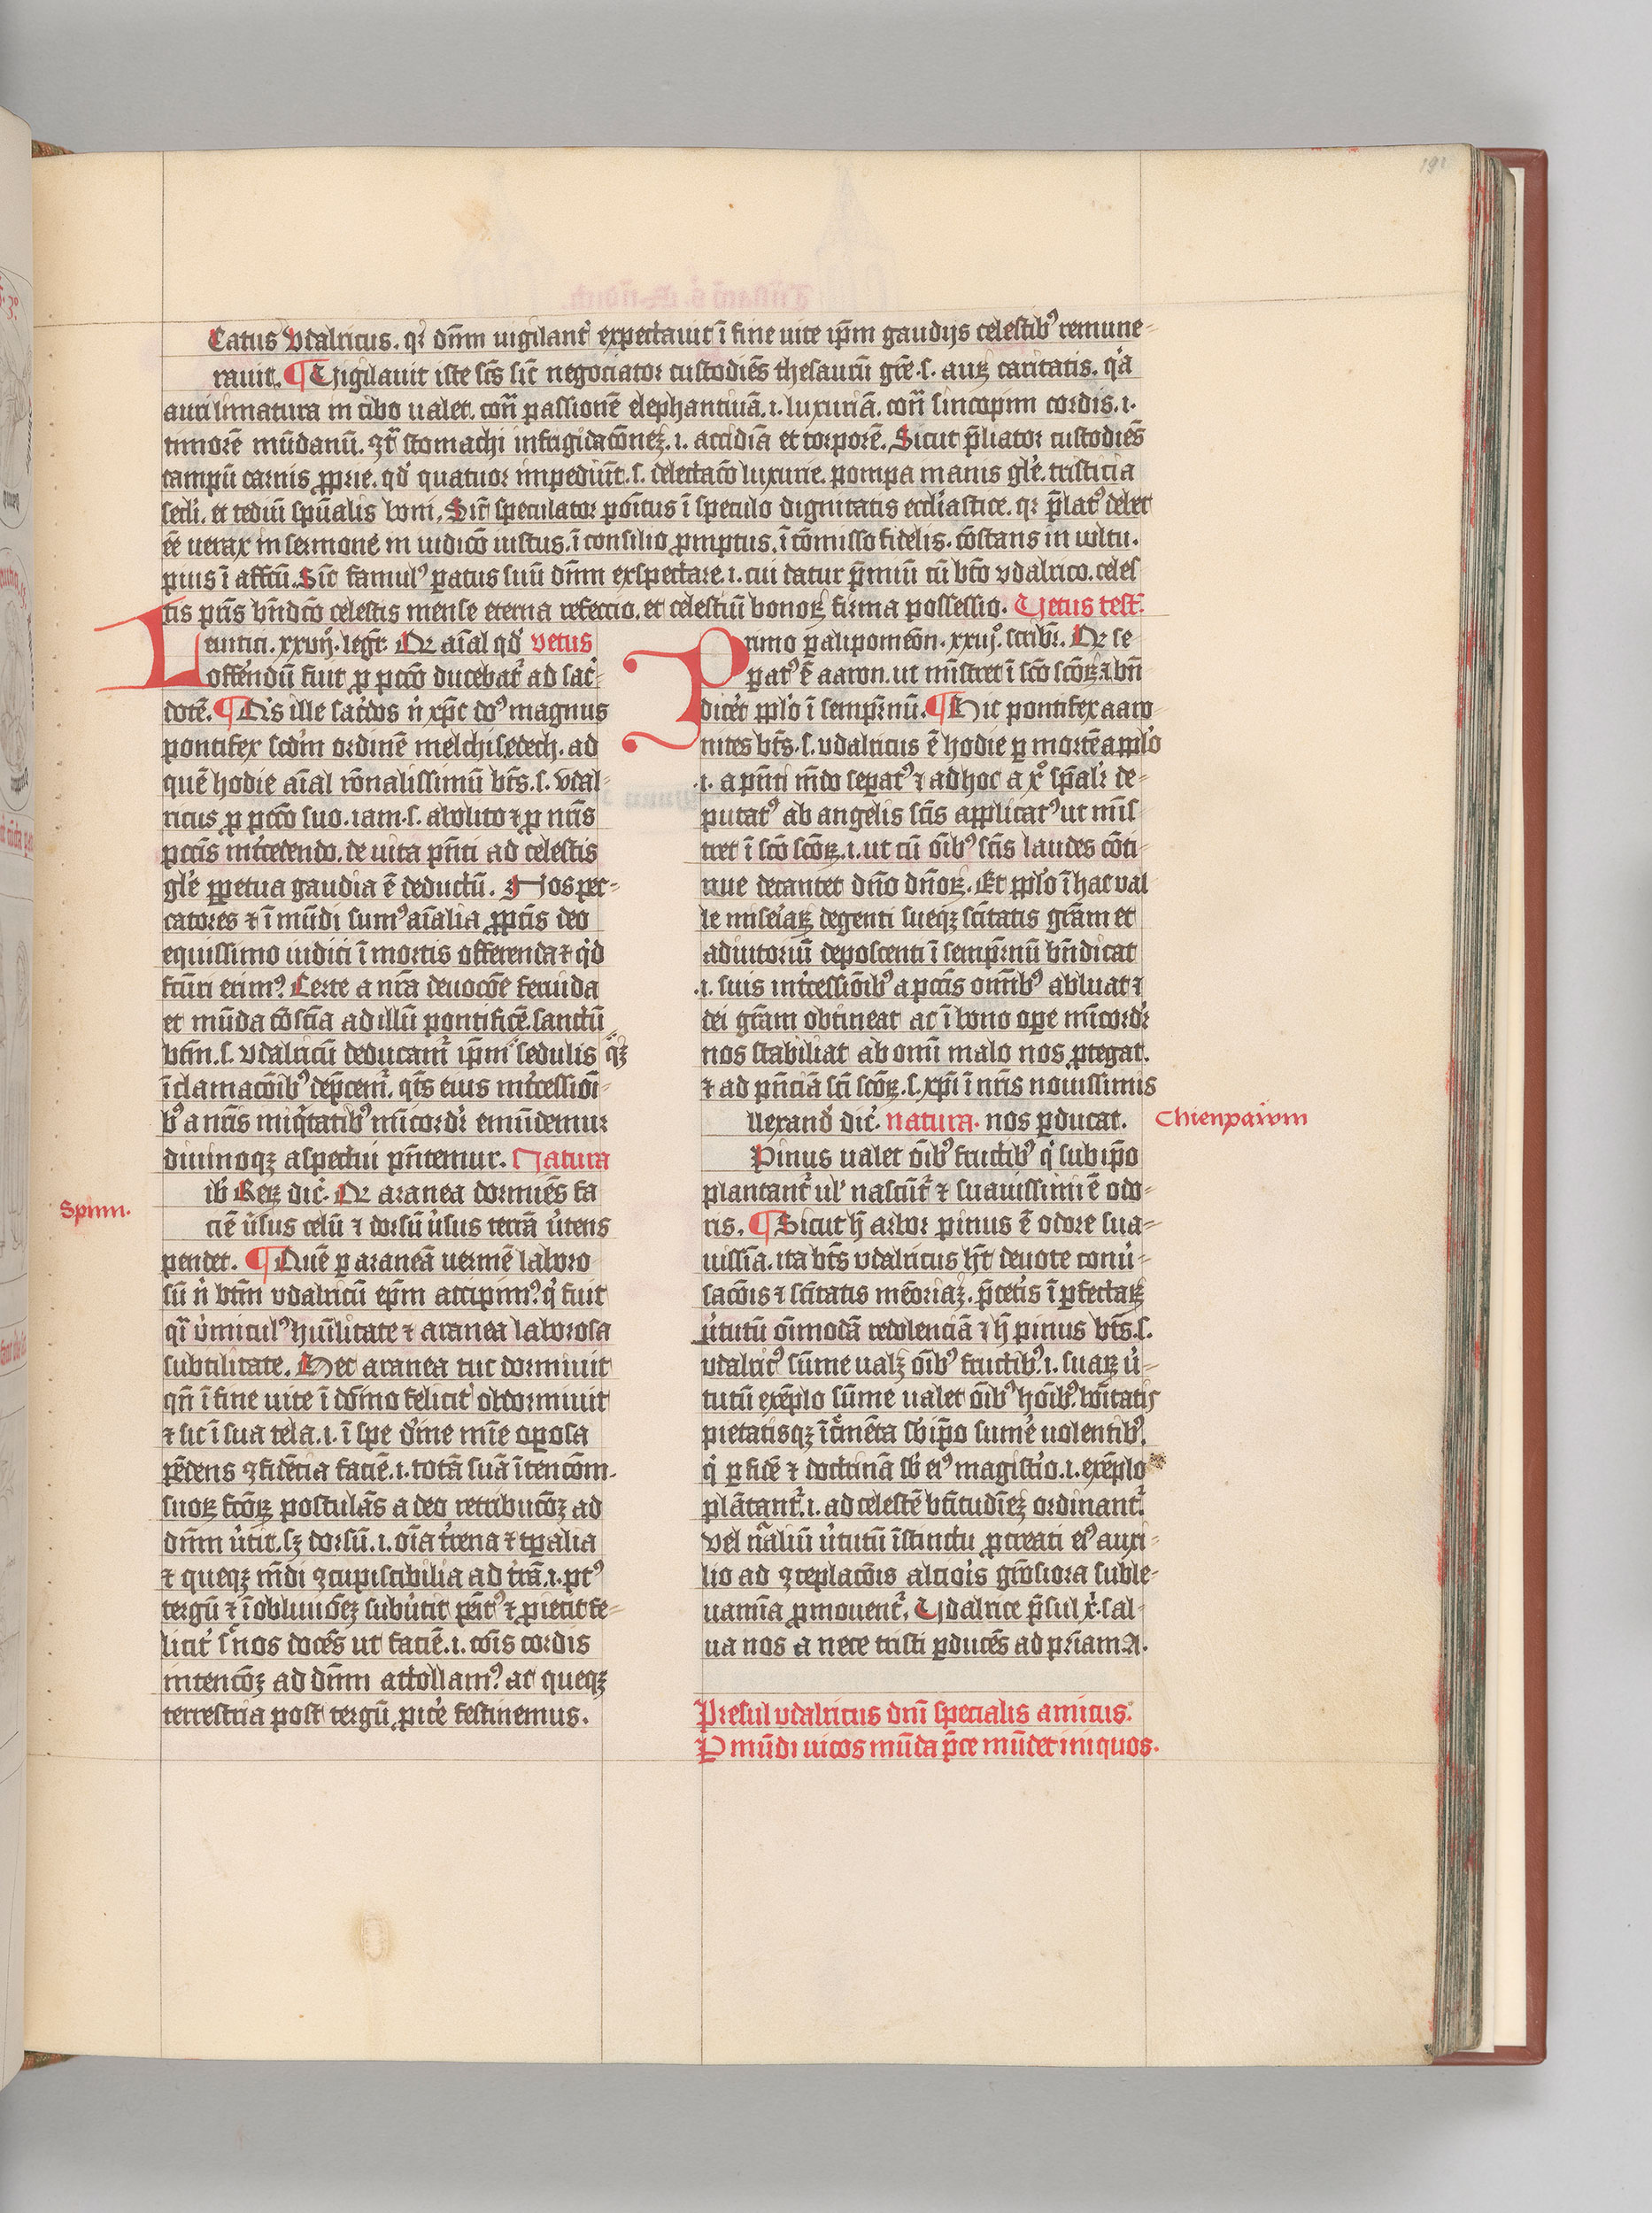 191
Catus vdalricus. qr dn̄m uigilant᷑ expectauit ī fine uite ip̄m gaudijs celestib᷒ remune-
rauit. ¶ Uigilauit iste sc̄s sic̄ negociator custodiēs thesaurū gr̄e .s. auꝝ caritatis. q͛a
auri limatura in cibo ualet. con̄ passionē elephantiuā .i. luxuriā. con̄ sincopim cordis .i.
timorē mūdanū. ꝯt̄ stomachi infrigidacōneꝫ .i. accidiā et torporē. Sicut p̄liator custodiēs
campū carnis ꝓprie. qd᷑ quatuor impediūt .s. delectacō luxurie. pompa inanis gl᷑e. tristicia
secl᷑i. et tediū spūalis boni. Sic̄ speculator positus ī speculo dignitatis eccl᷑iastice. qr p̄lat᷒ debet
eē uerax in sermone in iudicō iustus. ī consilio ꝓmptus. ī cōmisso fidelis. cōstans in uultu.
pius ī affcū. Sic̄ famul᷒ patus suū dn̄m exspectare .i. cui datur p̄miū cū bt̄o vdalrico. celes
tis pr̄is bn̄dictō celestis mense eterna refectio. et celestiū bonoꝝ firma possessio. Uetus test̄.
Leuitici . xxvij. legr̄. Qr aīal qd᷑ vetus
offerēdū fuit ꝓ pctō ducebat᷑ ad sac᷑-
dotē. ¶ Q᷑s ille sac᷑dos n̄ xp̄c do᷒ magnus
pontifex scd᷑m ordinē melchisedech. ad
quē hodie aīal rōnalissimū bt̄s .s. vdal-
ricus ꝓ pctō suo. iam .s. abolito ⁊ ꝓ nr̄is
pctīs int᷑cedendo. de uita pn̄ti ad celestis
gl᷑e ꝑpetua gaudia ē deductū. Nos pec-
catores ⁊ ī mūdi sum᷒ aīalia ꝓptīs deo
equissimo iudici ī mortis offerenda ⁊ q᷑d
fcūri erim᷒? Certe a nr̄a deuocōe feruida
et mūda cōsc̄ia ad illū pontificē sanctū
bt̄m .s. vdalricū deducam᷑ ip̄m sedulis qꝫ
īclamacōib᷒ dep̄cem᷑. qt̄s eius int᷑cessiōi-
b᷒ a nr̄is iniq᷑tatib᷒ mīcord᷑r emūdemur
diuinoqꝫ aspectui pn̄temur. Natura
ib᷑ Reꝝ dic᷑. Qr aranea dormiēs fa
ciē u᷑sus celū ⁊ dorsū u᷑sus terrā u᷑tens
pendet. ¶ Quē ꝑ araneā uermē laboro
sū n̄ bt̄m vdalricū ep̄m accipim᷒? q᷑ fuit
q̄i u᷑micul᷒ hūilitate ⁊ aranea laborosa
subtilitate. Hec aranea tūc dormiuit
qn̄ ī fine uite ī dn̄o felicit᷑ obdormiuit
⁊ sic ī sua tela .i. ī spe diuine mīe oposa
pēdens ꝯfidēcia faciē .i. totā suā ītencōm
suoꝝ fcōꝝ postulās a deo retribucōꝫ ad
dn̄m u᷑tit. sꝫ dorsū .i. oīa t᷑rena ⁊ tp̄alia
⁊ queqꝫ mūdi ꝯcupiscibilia ad t᷑rā .i. pt᷒
tergū ⁊ ī obliuiōeꝫ subu᷑tit pēit᷒ ⁊ ꝓiecit fe-
licit᷑ s᷑ nos docēs ut faciē .i. cōis cordis
intencōꝫ ad dn̄m attollam᷒ ac queqꝫ
terrestria post tergū ꝓice᷑ festinemus.
Primo ꝑalipomēon . xxiijº. scribr̄. Qr se-
pat᷒ ē aaron. ut mīstret ī sc̄o sc̄oꝝ ⁊ bn̄
dice᷑t ppl᷑o ī semp̄nū. ¶ Hic pontifex aaro
nites bt̄s .s. vdalricus ē hodie ꝑ mortē a ppl᷑o
.i. a pn̄ti mūdo sepat᷒ ⁊ ad hoc a xº sp̄al᷑r de-
putat᷒ ab angelis sc̄is applicat᷒ ut mīs-
tret ī sc̄o sc̄oꝝ .i. ut cū oīb᷒ sc̄is laudes cōti-
nue decantet dn̄o dn̄oꝝ. Et ppl᷑o ī hac val
le miseiaꝝ degenti sueqꝫ sc̄itatis gr̄am et
adiutoriū deposcenti ī semp̄nū bn̄dicat
.i. suis int᷑cessiōib᷒ a pctīs omīb᷒ abluat ⁊
dei gr̄am obtineat ac ī bono oꝑe mīcord᷑r
nos stabiliat ab omī malo nos ꝓtegat.
⁊ ad pn̄ciā sc̄i sc̄oꝝ .s. xp̄i ī nr̄is nouissimis
llexand᷑ dic᷑. natura. nos ꝑducat.
Pinus ualet oīb᷒ fructib᷒ q᷑ sub ip̄o
plantant᷑ ul᷑ nascūt᷑ ⁊ suauissimi ē odo-
ris. ¶ Sicut h̄ arbor pinus ē odore sua-
uissīa. ita bt̄s vdalricus h̄t deuote conu᷑-
sacōis ⁊ sc̄itatis mēoriaꝫ. p̄cet᷑is ī ꝑfectaꝝ
u᷑tutū oīmodā redolenciā ⁊ h̄ pinus bt̄s .s.
vdalric᷒ sūme ualꝫ oīb᷒ fructib᷒ .i. suaꝝ u᷑-
tutū exēplo sūme ualet oīb᷒ hoīb᷒. bōitatis
pietatisqꝫ īc᷑mēta sb᷑ ip̄o sume᷑ uolentib᷒.
q᷑ ꝑ fidē ⁊ doctrinā sb᷑ ei᷒ magist᷑io .i. exēplo
plātant᷑ .i. ad celestē bt̄itudīeꝫ ordinant᷑.
vel nāliū u᷑tutū īstinctu ꝓcreati ei᷒ auxi-
lio ad ꝯteplacōis alciois gr̄osiora suble-
uamīa ꝓmouent᷑. Udalrice p̄sul x᷑. sal-
ua nos a nece tristi ꝑducēs ad pr̄iam A.
Presul vdalricus dn̄i specialis amicus.
P mūdi uicos mūda p̄ce mūdet iniquos.
Spinn.
Chienpawm